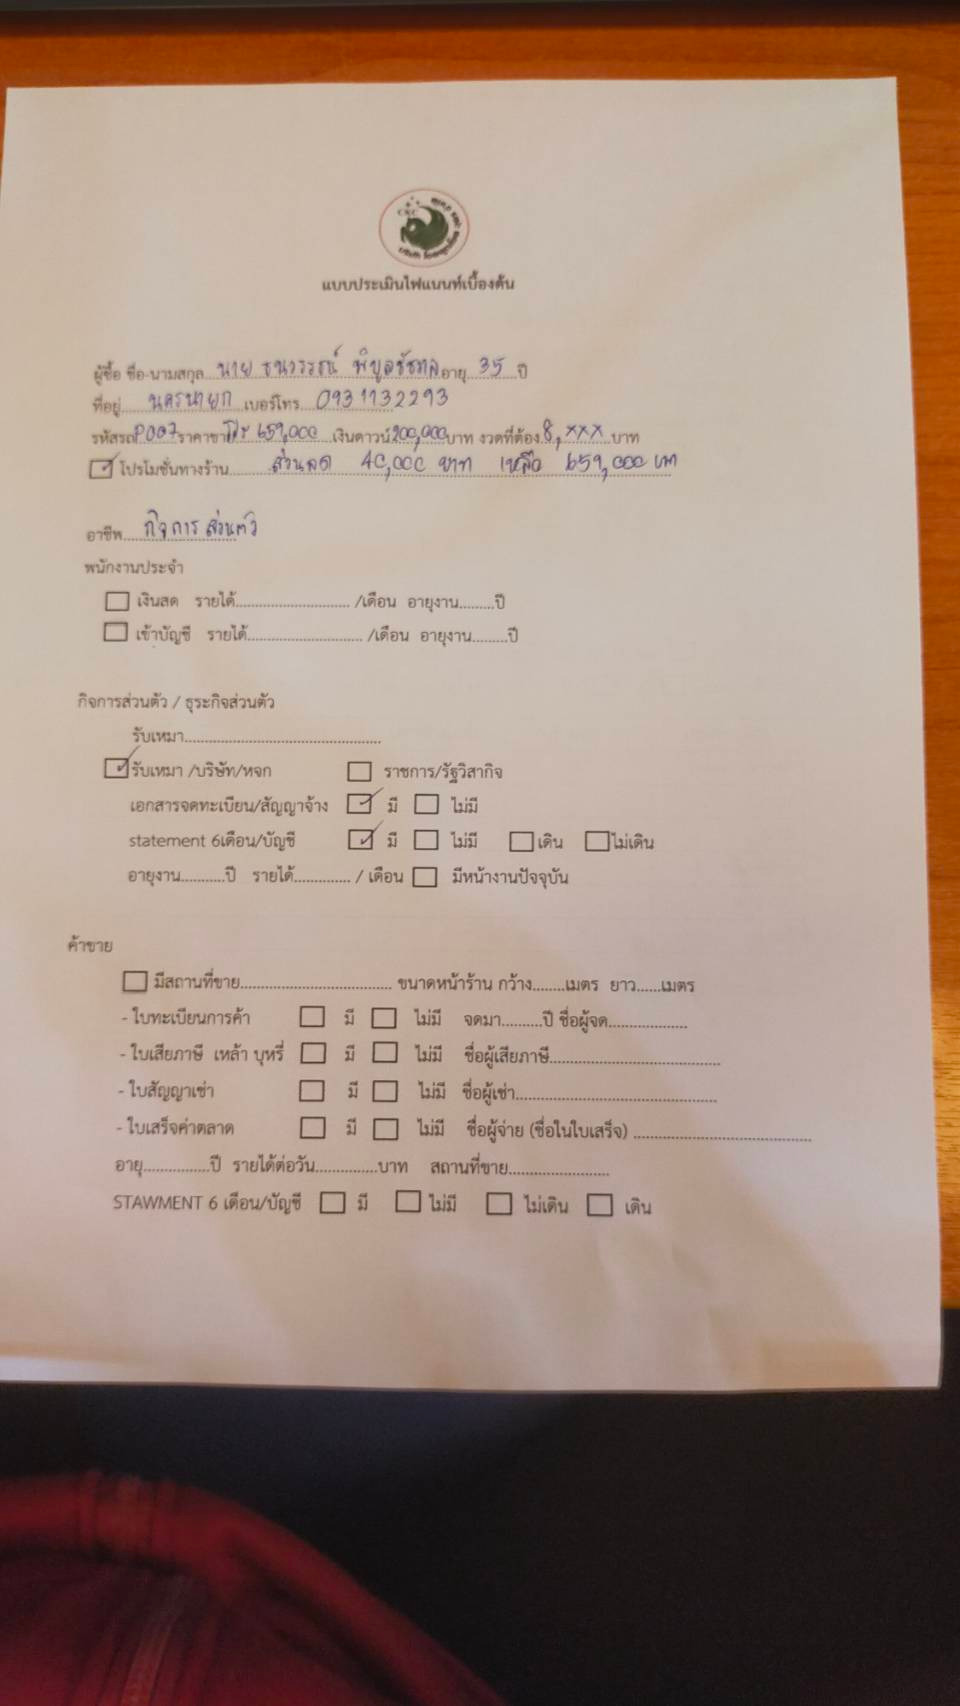 แบบประเมินไฟแนนท์เบื้องต้น
ผู้ซื้อ ชื่อ-นามสกุล...นาย ธนวรรธน์ พิบูลธัชทล อายุ...35...ปี
ที่อยู่...นครนายก...เบอร์โทร...0931132293
รหัสรถ P007 ราคาขาย 659,000 เงินดาวน์ 200,000 บาท งวดที่ต้อง.8,xxx.บาท
โปรโมชั่นทางร้าน......ส่วนลด 40,000 บาท เหลือ 659,000 บาท
อาชีพ...กิจการส่วนตัว
พนักงานประจำ
เงินสด รายได้............................ /เดือน อายุงาน.........ปี
เข้าบัญชี รายได้............................ /เดือน อายุงาน.........ปี
กิจการส่วนตัว / ธุระกิจส่วนตัว
รับเหมา................................................
รับเหมา /บริษัท/หจก ราชการ/รัฐวิสากิจ
เอกสารจดทะเบียน/สัญญาจ้าง มี ไม่มี
statement 6เดือน/บัญชี มี ไม่มี เดิน ไม่เดิน
อายุงาน...........ปี รายได้.............. / เดือน มีหน้างานปัจจุบัน
ค้าขาย
มีสถานที่ขาย..................................... ขนาดหน้าร้าน กว้าง........เมตร ยาว......เมตร
- ใบทะเบียนการค้า มี ไม่มี จดมา..........ปี ชื่อผู้จด...................
- ใบเสียภาษี เหล้า บุหรี่ มี ไม่มี ชื่อผู้เสียภาษี..........................................
- ใบสัญญาเช่า มี ไม่มี ชื่อผู้เช่า..................................................
- ใบเสร็จค่าตลาด มี ไม่มี ชื่อผู้จ่าย (ชื่อในใบเสร็จ) ............................................
อายุ................ปี รายได้ต่อวัน...............บาท สถานที่ขาย.........................
STAWMENT 6 เดือน/บัญชี มี ไม่มี ไม่เดิน เดิน